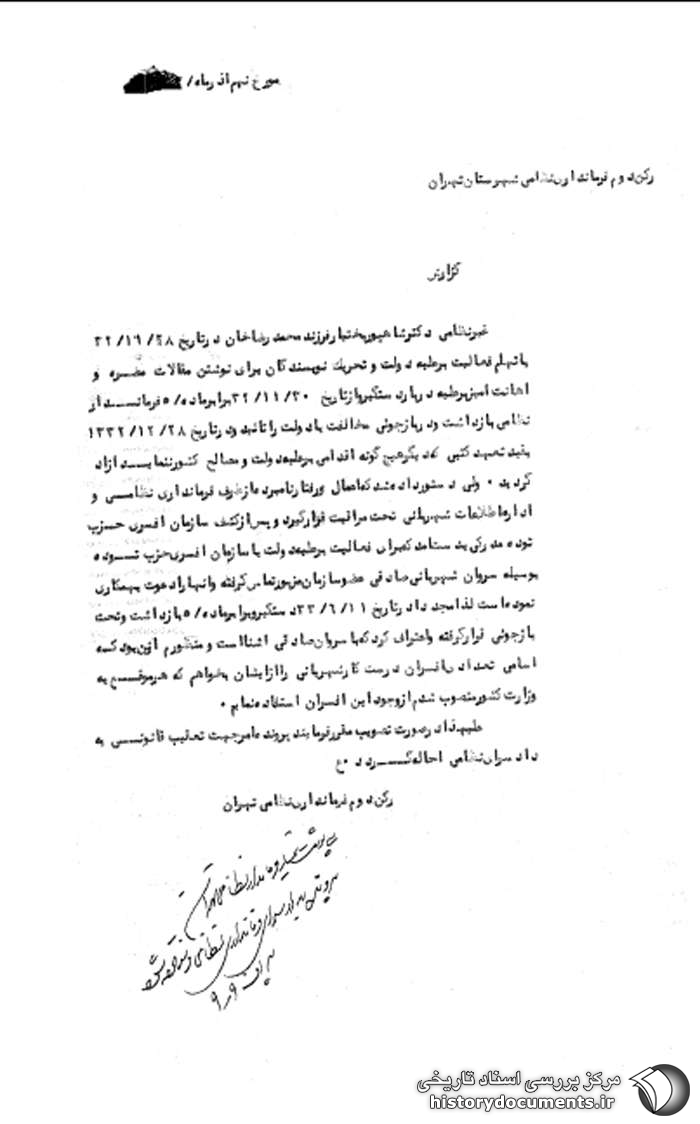 مورخ نهم اذرماه/
رکن دوم فرمانداری نظامی شهرستان تهران
گزارش
غیرنظامی دکتر شاهپور بختیار فرزند محمد رضا خان در تاریخ ۲۸/ ۱۲/ ۳۲
باتهام فعالیت برعلیه دولت و تحریک نویسندگان برای نوشتن مقالات مضره و
اهانت امیز برعلیه دربار دستگیر و از تاریخ ۳۰/ ۱۱/ ۳۲ برابر ماده /۵ فرمانداری
نظامی بازداشت و در بازجوئی مخالفت با دولت را تائید و در تاریخ ۲۸/ ۱۲/ ۱۳۳۲
بقید تعهد کتبی که دیگر هیچ گونه اقدامی برعلیه دولت و مصالح کشور ننماید آزاد
گردید ۰ ولی دستور داده شد که اعمال و رفتار نامبرده از طرف فرمانداری نظامی و
اداره اطلاعات شهربانی تحت مراقبت قرار گیرد و پس از کشف سازمان افسری حزب
توده مدرکی بدست آمد که برای فعالیت برعلیه دولت با سازمان افسری حزب توده
بوسیله سروان شهربانی صادقی عضو سازمان مزبور تماس گرفته وانها را دعوت بهمکاری
نموده است لذا مجددا در تاریخ ۱۱/ ۶/ ۳۳ دستگیر و برابر ماده /۵ بازداشت وتحت
بازجوئی قرار گرفته واعتراف کرد که با سروان صادقی اشنا است و منظورم این بود که
اسامی تعدادی افسران درست کار شهربانی را از ایشان بخواهم که هر موقع به
وزارت کشور منصوب شدم از وجود این افسران استفاده نمایم ۰
علیهذا در صورت تصویب مقرر فرمایند پرونده امر جهت تعقیب قانونی به
دادسرای نظامی احاله گردد ع
رکن دوم فرمانداری نظامی تهران
فرماندار نظامی تهران
فرمانداری نظامی
۹ر۹
مرکز بررسی اسناد تاریخی
historydocuments.ir